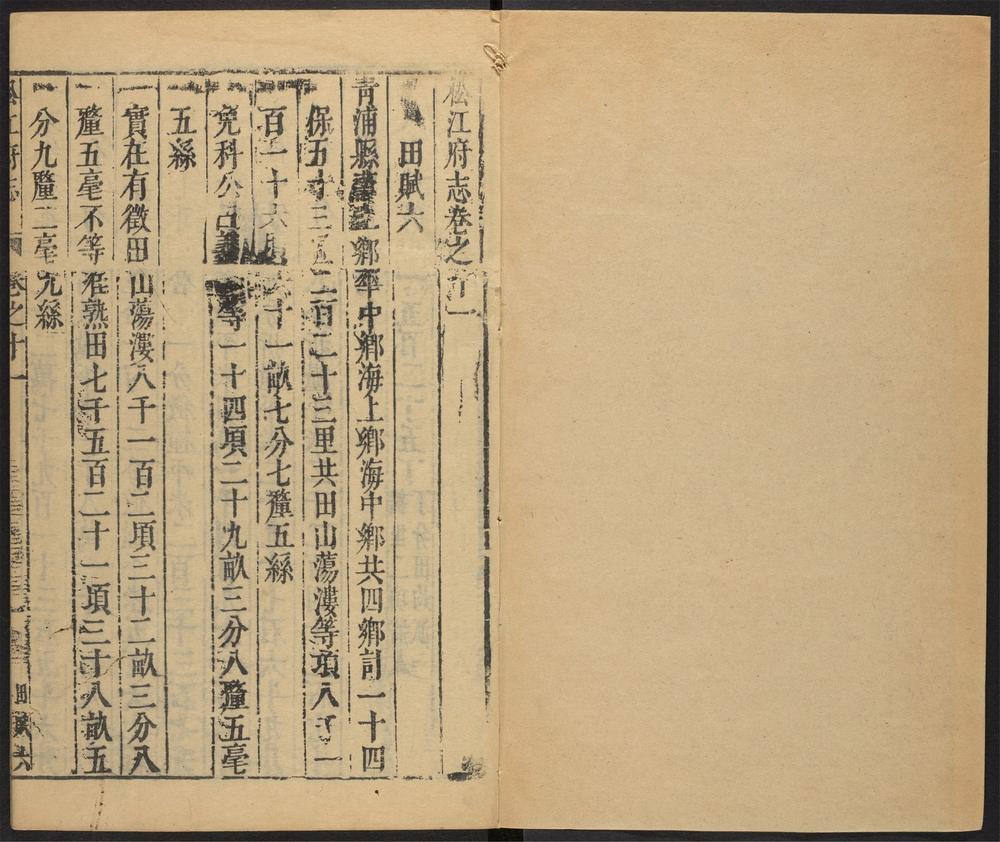 松江府志卷之十一
田賦六
青浦縣 鄉 華中鄉海上鄉海中鄉共四鄉計一十四
保五十三 二百二十三里共田山蕩漊等項八千一
百一十六 六十一畝七分七釐五絲
免科公占義 等一十四頃二十九畝三分八釐五毫
五絲
實在有徵田山蕩漊八千一百二頃三十二畝三分八
釐五毫不等准熟田七千五百二十一頃三十八畝五
分九釐二毫九絲
松江府志 卷之十一 田賦六